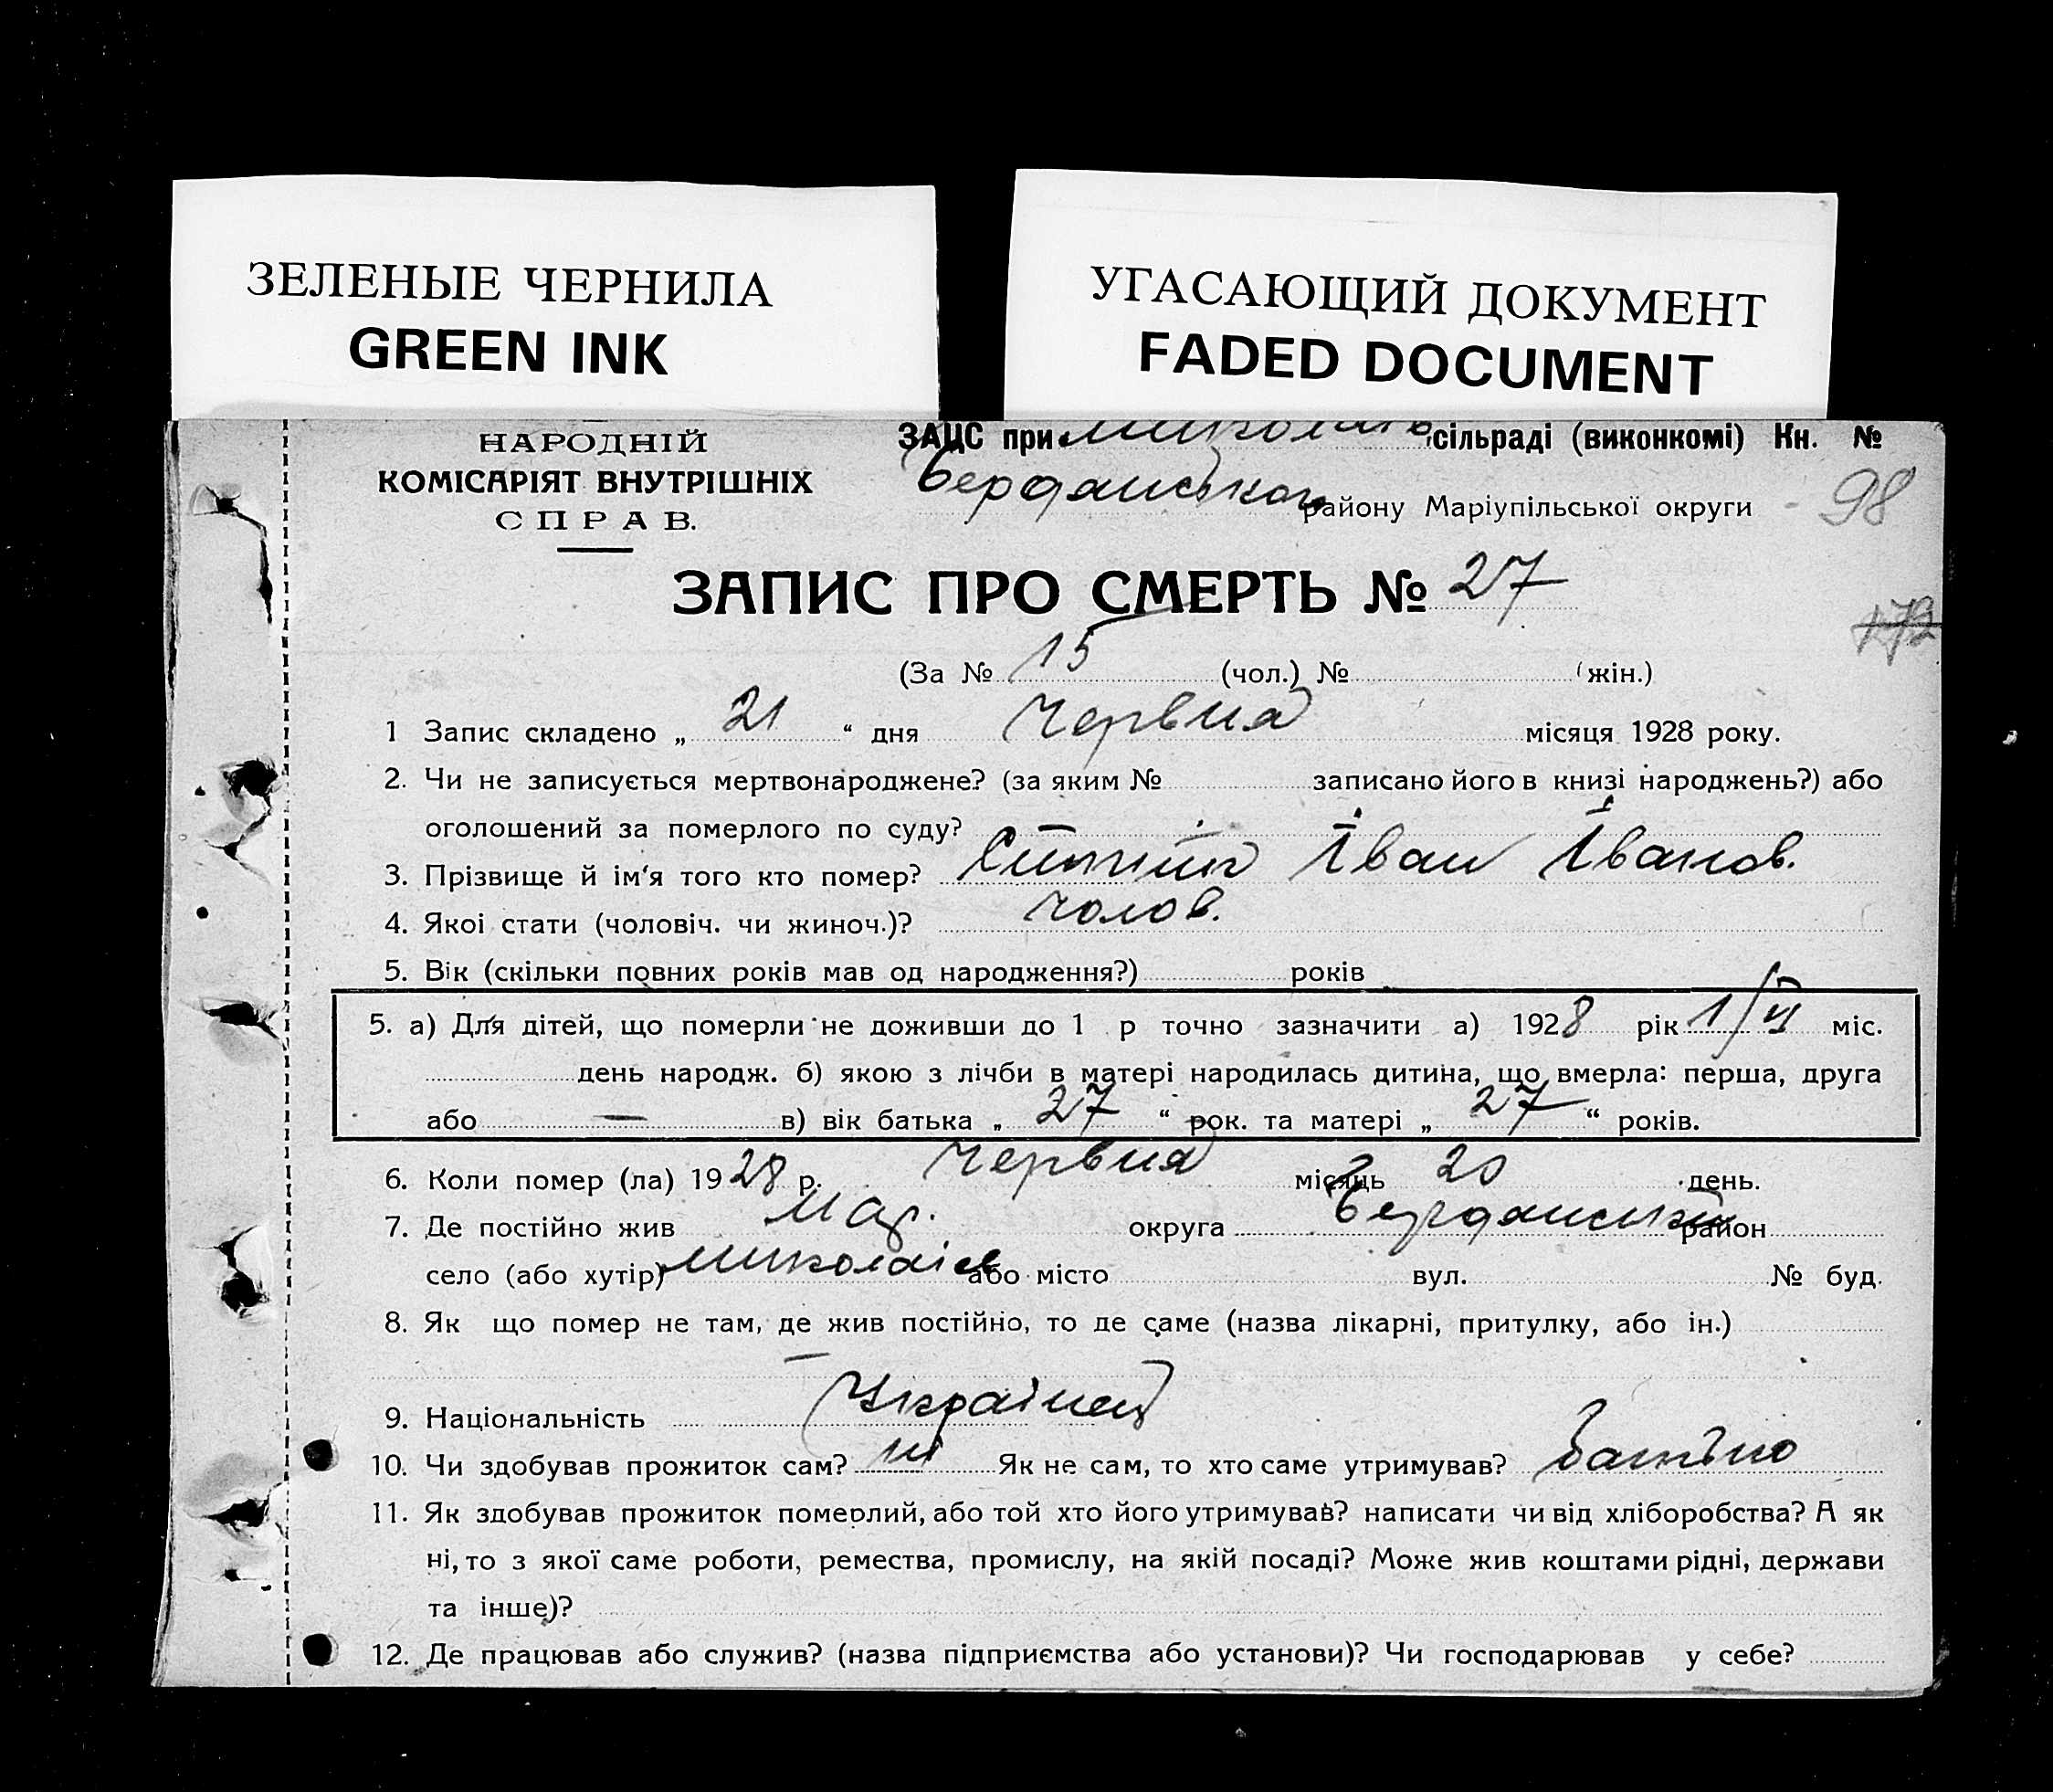 ЗЕЛЕНЫЕ ЧЕРНИЛА
GREEN INK
УГАСАЮЩИЙ ДОКУМЕНТ
FADED DOCUMENT
НАРОДНІЙ
КОМІСАРІЯТ ВНУТРІШНІХ
СПРАВ.
ЗАЦС при сільраді (виконкомі) Кн. №
Бердянського району Маріупільської округи 98
ЗАПИС ПРО СМЕРТЬ № 27
172
(За № 15 (чол.) № (жін.)
1 Запис складено „ 21 “ дня Червня місяця 1928 року.
2. Чи не записується мертвонароджене? (за яким № записано його в книзі народжень?) або
оголошений за померлого по суду?
3. Прізвище й ім'я того кто помер? Іван Іванов.
4. Якоі стати (чоловіч. чи жиноч.)? чолов.
5. Вік (скільки повних років мав од народження?) років
5. а) Для дітей, що померли не доживши до 1 р точно зазначити а) 1928 рік 1/VI міс.
день народж. б) якою з лічби в матері народилась дитина, що вмерла: перша, друга
або — в) вік батька „ 27 “ рок. та матері „ 27 “ років.
6. Коли помер (ла) 1928 р. Червня місяць 20 день.
7. Де постійно жив Мар. округа Бердянський район
село (або хутір) або місто вул. № буд.
8. Як що помер не там, де жив постійно, то де саме (назва лікарні, притулку, або ін.)
—
9. Національність Українец
10. Чи здобував прожиток сам? ні Як не сам, то хто саме утримував? батько
11. Як здобував прожиток померлий, або той хто його утримував? написати чи від хліборобства? А як
ні, то з якої саме роботи, ремества, промислу, на якій посаді? Може жив коштами рідні, держави
та інше)?
12. Де працював або служив? (назва підприємства або установи)? Чи господарював у себе?